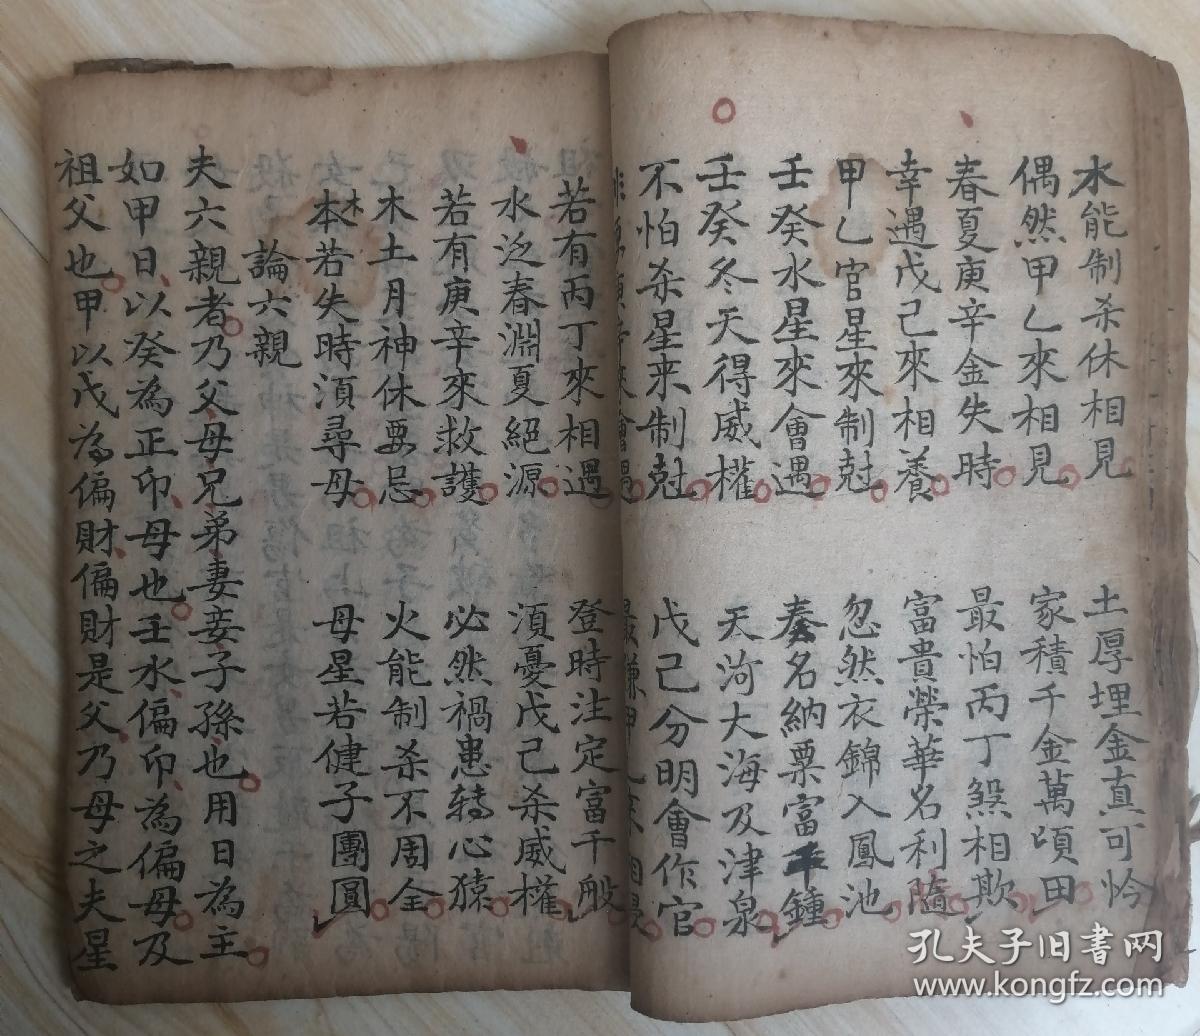 水能制杀休相見 土厚埋金真可怜
偶然甲乙來相見 家積千金萬頃田
春夏庚辛金失時 最怕丙丁煞相欺
幸遇戊己來相養 富貴榮華名利隨
甲乙官星來制尅 忽然衣錦入鳳池
壬癸水星來會遇 奏名納粟富千鍾
壬癸冬天得威權 天河大海及津泉
不怕杀星来制尅 戊己分明會作官
庚辛來會遇
若有丙丁來相遇 登時注定富千般
水泛春淵夏絕源 須憂戊己杀威權
若有庚辛來救護 必然禍患轉心猿
木土月神休要忌 火能制杀不周全
本木若失時須尋母 母星若健子團圓
論六親
夫六親者乃父母兄弟妻妾子孫也用日為主
如甲日以癸為正印母也壬水偏印為偏母及
祖父也甲以戊為偏財偏財是父乃母之夫星
孔夫子旧書网
www.kongfz.com